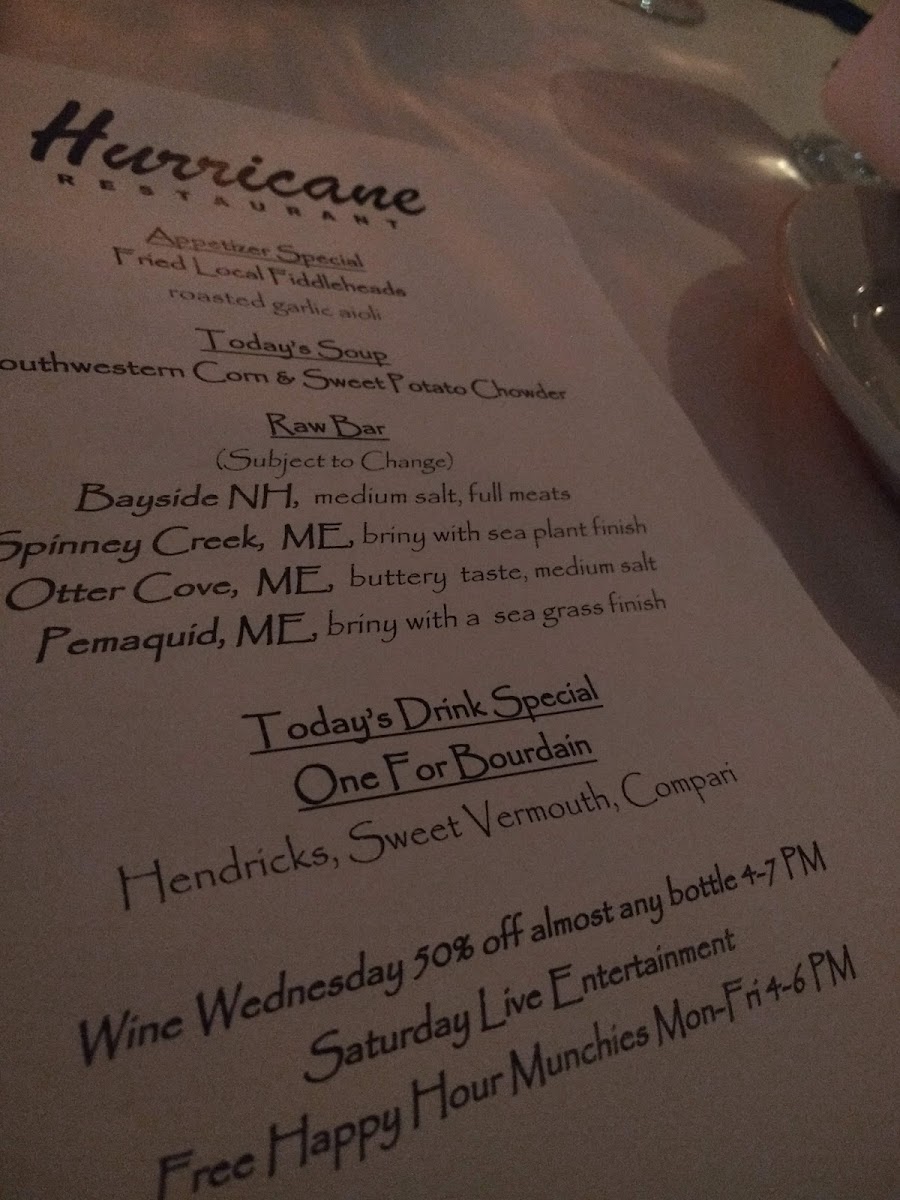 Hurricane
RESTAURANT
Appetizer Special
Fried Local Fiddleheads
roasted garlic aioli
Today's Soup
outhwestern Corn & Sweet Potato Chowder
Raw Bar
(Subject to Change)
Bayside NH, medium salt, full meats
Spinney Creek, ME, briny with sea plant finish
Otter Cove, ME, buttery taste, medium salt
Pemaquid, ME, briny with a sea grass finish
Today's Drink Special
One For Bourdain
Hendricks, Sweet Vermouth, Compari
Wine Wednesday 50% off almost any bottle 4-7 PM
Saturday Live Entertainment
Free Happy Hour Munchies Mon-Fri 4-6 PM